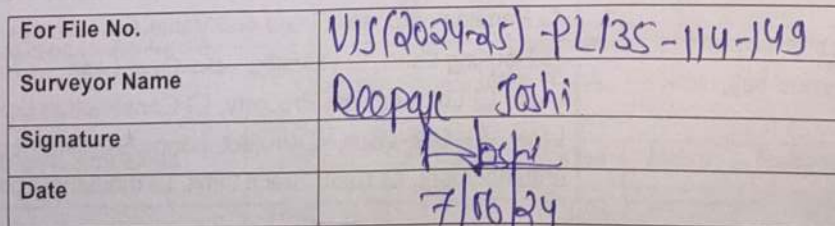 For File No. VIS(2024-25)-PL135-114-149
Surveyor Name Deepak Joshi
Signature Joshi
Date 7/06/24